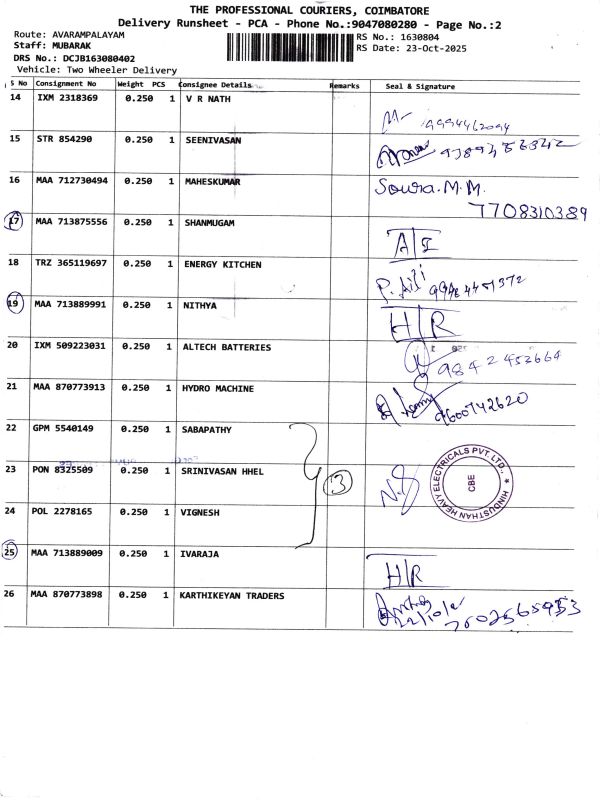 THE PROFESSIONAL COURIERS, COIMBATORE
Delivery Runsheet - PCA - Phone No.:9047080280 - Page No.:2
Route: AVARAMPALAYAM RS No.: 1630804
Staff: MUBARAK RS Date: 23-Oct-2025
DRS No.: DCJB163080402
Vehicle: Two Wheeler Delivery
S No Consignment No Weight PCS Consignee Details Remarks Seal & Signature
14 IXM 2318369 0.250 1 V R NATH
9994462094
15 STR 854290 0.250 1 SEENIVASAN
16 MAA 712730494 0.250 1 MAHESKUMAR Soura.M.M.
7708310389
17 MAA 713875556 0.250 1 SHANMUGAM
A/I
18 TRZ 365119697 0.250 1 ENERGY KITCHEN
19 MAA 713889991 0.250 1 NITHYA
H/R
20 IXM 509223031 0.250 1 ALTECH BATTERIES
9842452664
21 MAA 870773913 0.250 1 HYDRO MACHINE
9600742620
22 GPM 5540149 0.250 1 SABAPATHY
23 PON 8325509 0.250 1 SRINIVASAN HHEL 3
HINDUSTHAN HEAVY ELECTRICALS PVT LTD., CBE
24 POL 2278165 0.250 1 VIGNESH
25 MAA 713889009 0.250 1 IVARAJA
H/R
26 MAA 870773898 0.250 1 KARTHIKEYAN TRADERS